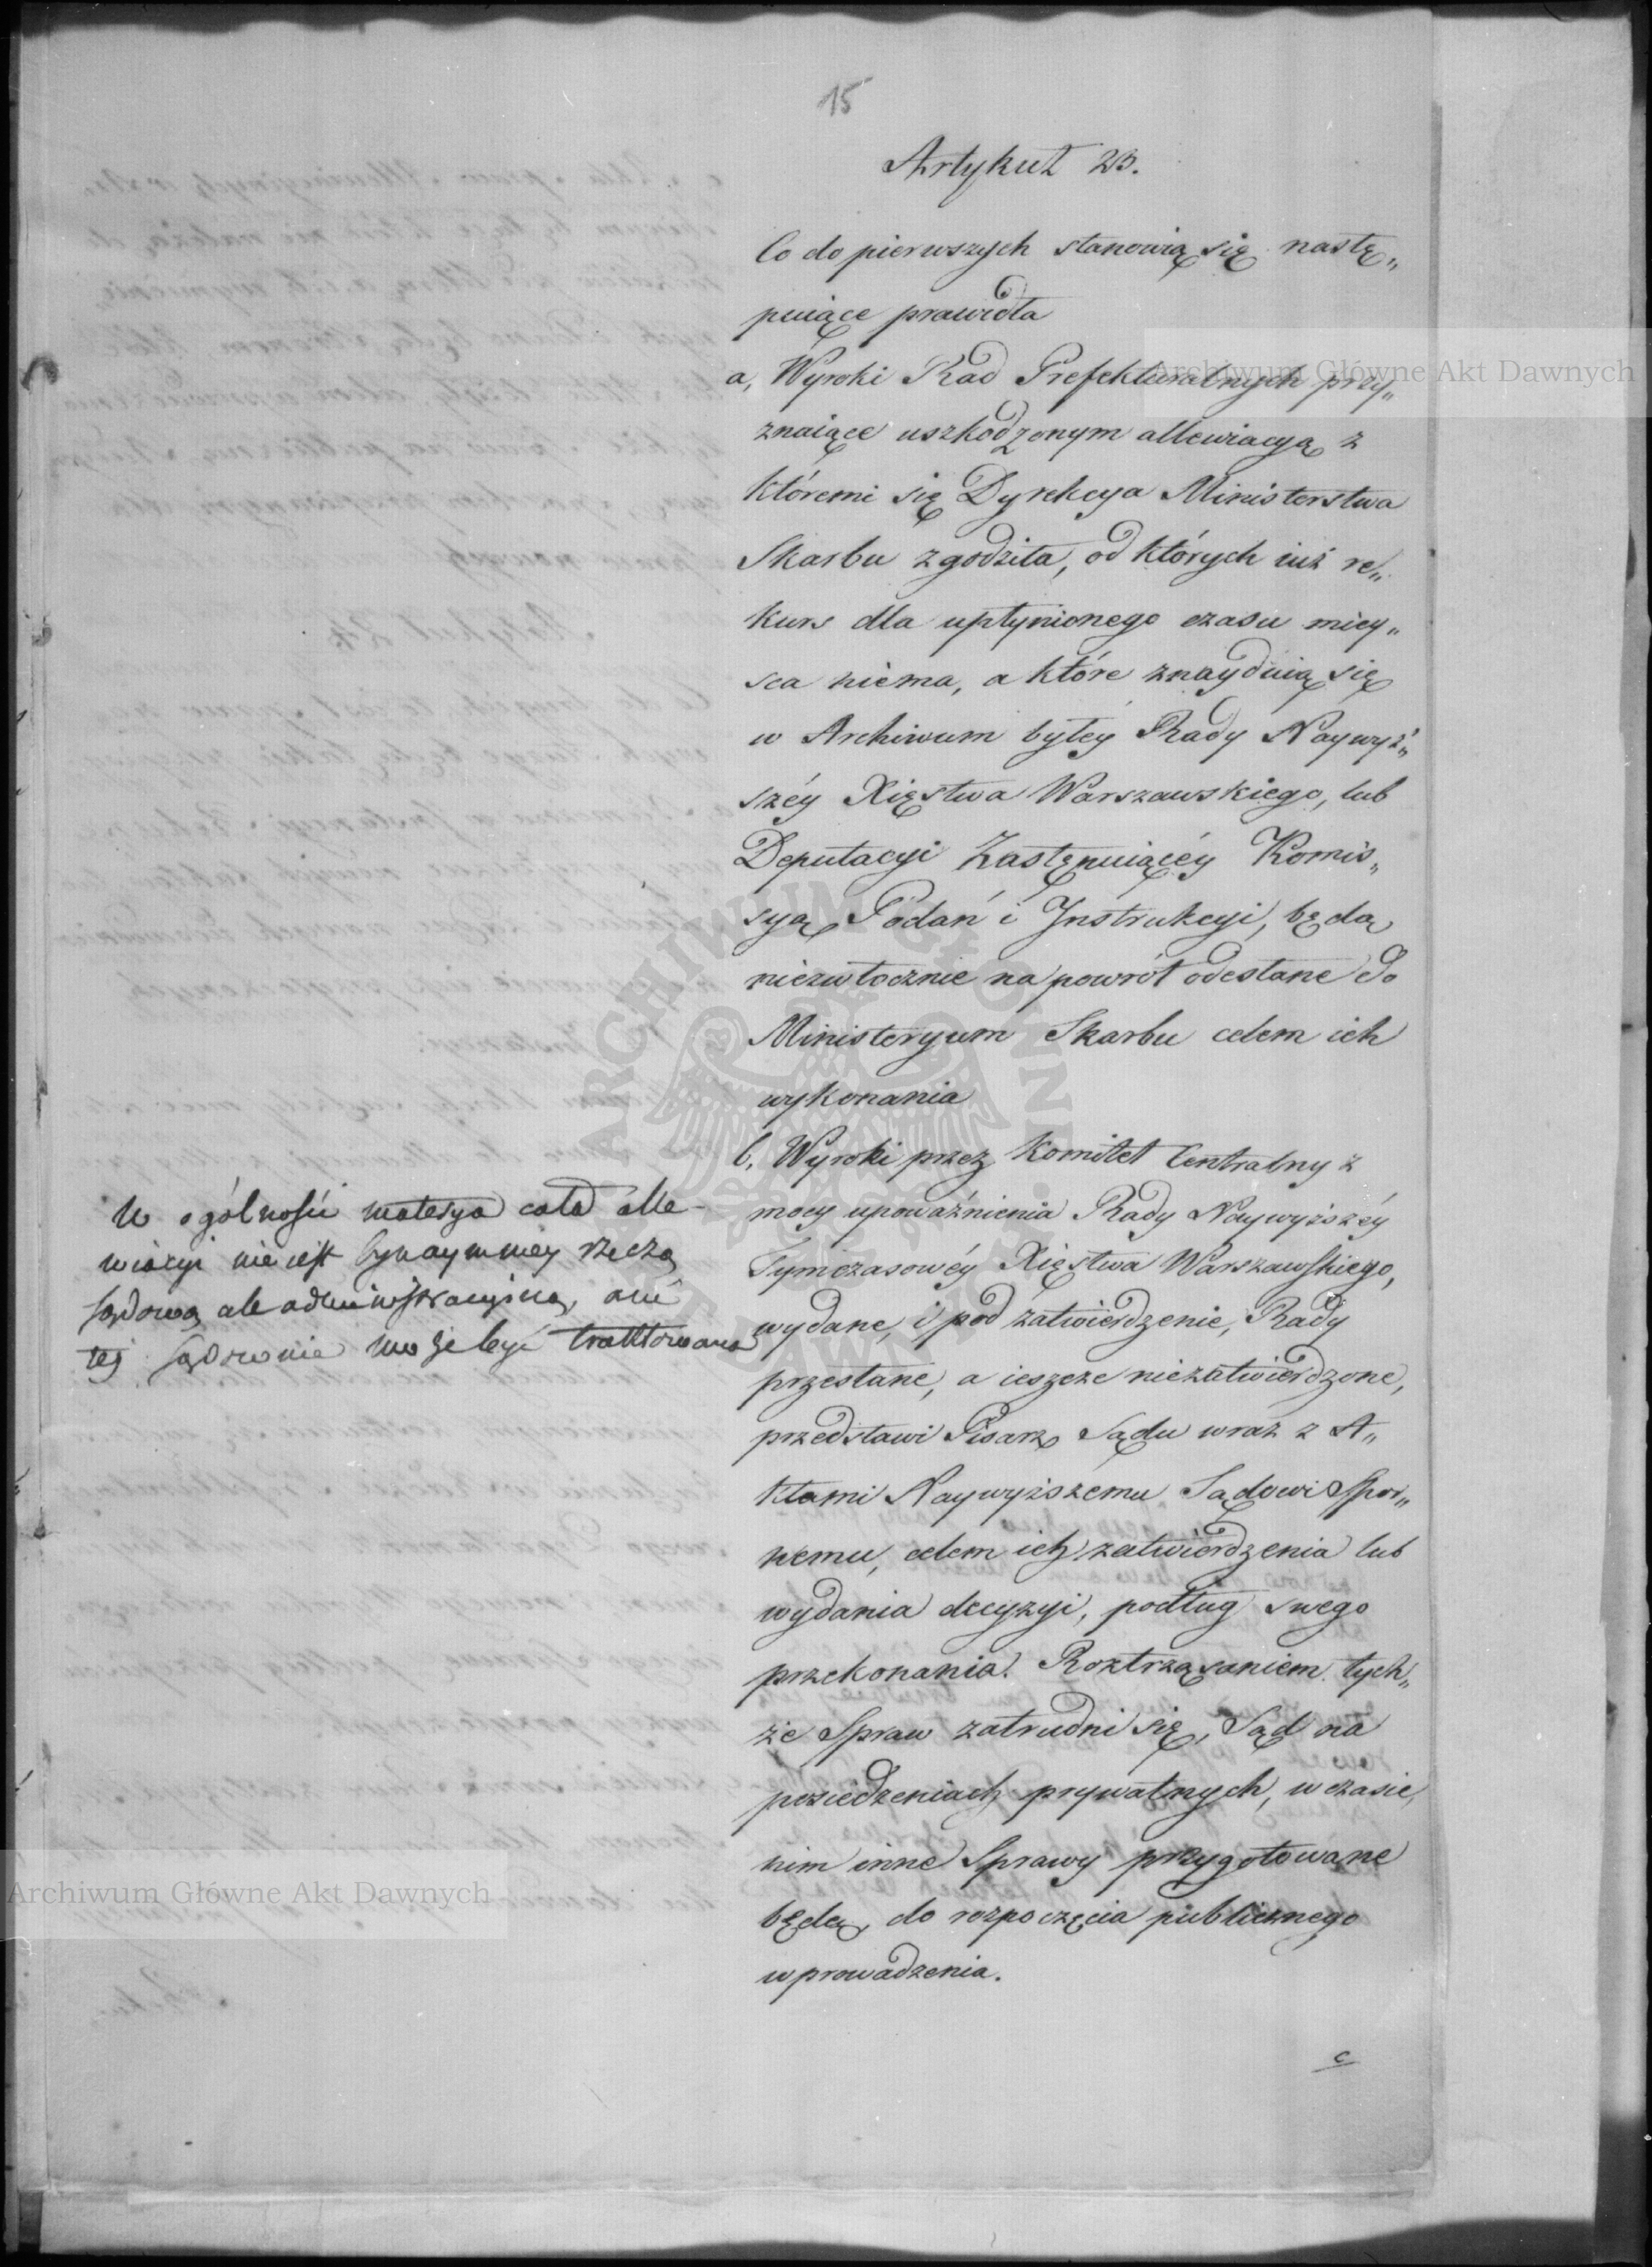 15
Artykuł 23.
Co do pierwszych stanowią się nastę„
puiące prawidła
a, Wyroki Rad Prefekturalnych przy„
znaiące uszkodzonym allewiacyą z
któremi się Dyrekcya Ministerstwa
Skarbu zgodziła, od których iuż re„
kurs dla upłynionego czasu miey„
sca niema, a które znayduią się
w Archiwum byłey Rady Naywyż„
széy Xięstwa Warszawskiego, lub
Deputacyi Zastępuiącéy Komis„
syą Podań i Jnstrukcyi, będą
niezwłocznie na powrót odesłane do
Ministeryum Skarbu celem ich
wykonania
b, Wyroki przez Komitet Centralny z
mocy upoważnienia Rady Naywyższéy
Tymczasowéy Xięstwa Warszawskiego,
wydane, i pod zatwierdzenie, Rady
przesłane, a ieszcze niezatwierdzone,
przedstawi Pisarz Sądu wraz z A„
ktami Naywyższemu Sądowi Spor„
nemu, celem ich zatwierdzenia lub
wydania decyzyi, podług swego
przekonania. Roztrząsaniem tych„
że Spraw zatrudni się, Sąd na
posiedzeniach prywatnych, w czasie,
nim inne Sprawy przygotowane
będą, do rozpoczęcia publicznego
wprowadzenia.
c
W ogólności materya cała alle-
wiacyi nie iest bynaymniey rzeczą
sądową ale administracyiną, ani
też sądownie może być traktowana
Archiwum Główne Akt Dawnych
Archiwum Główne Akt Dawnych